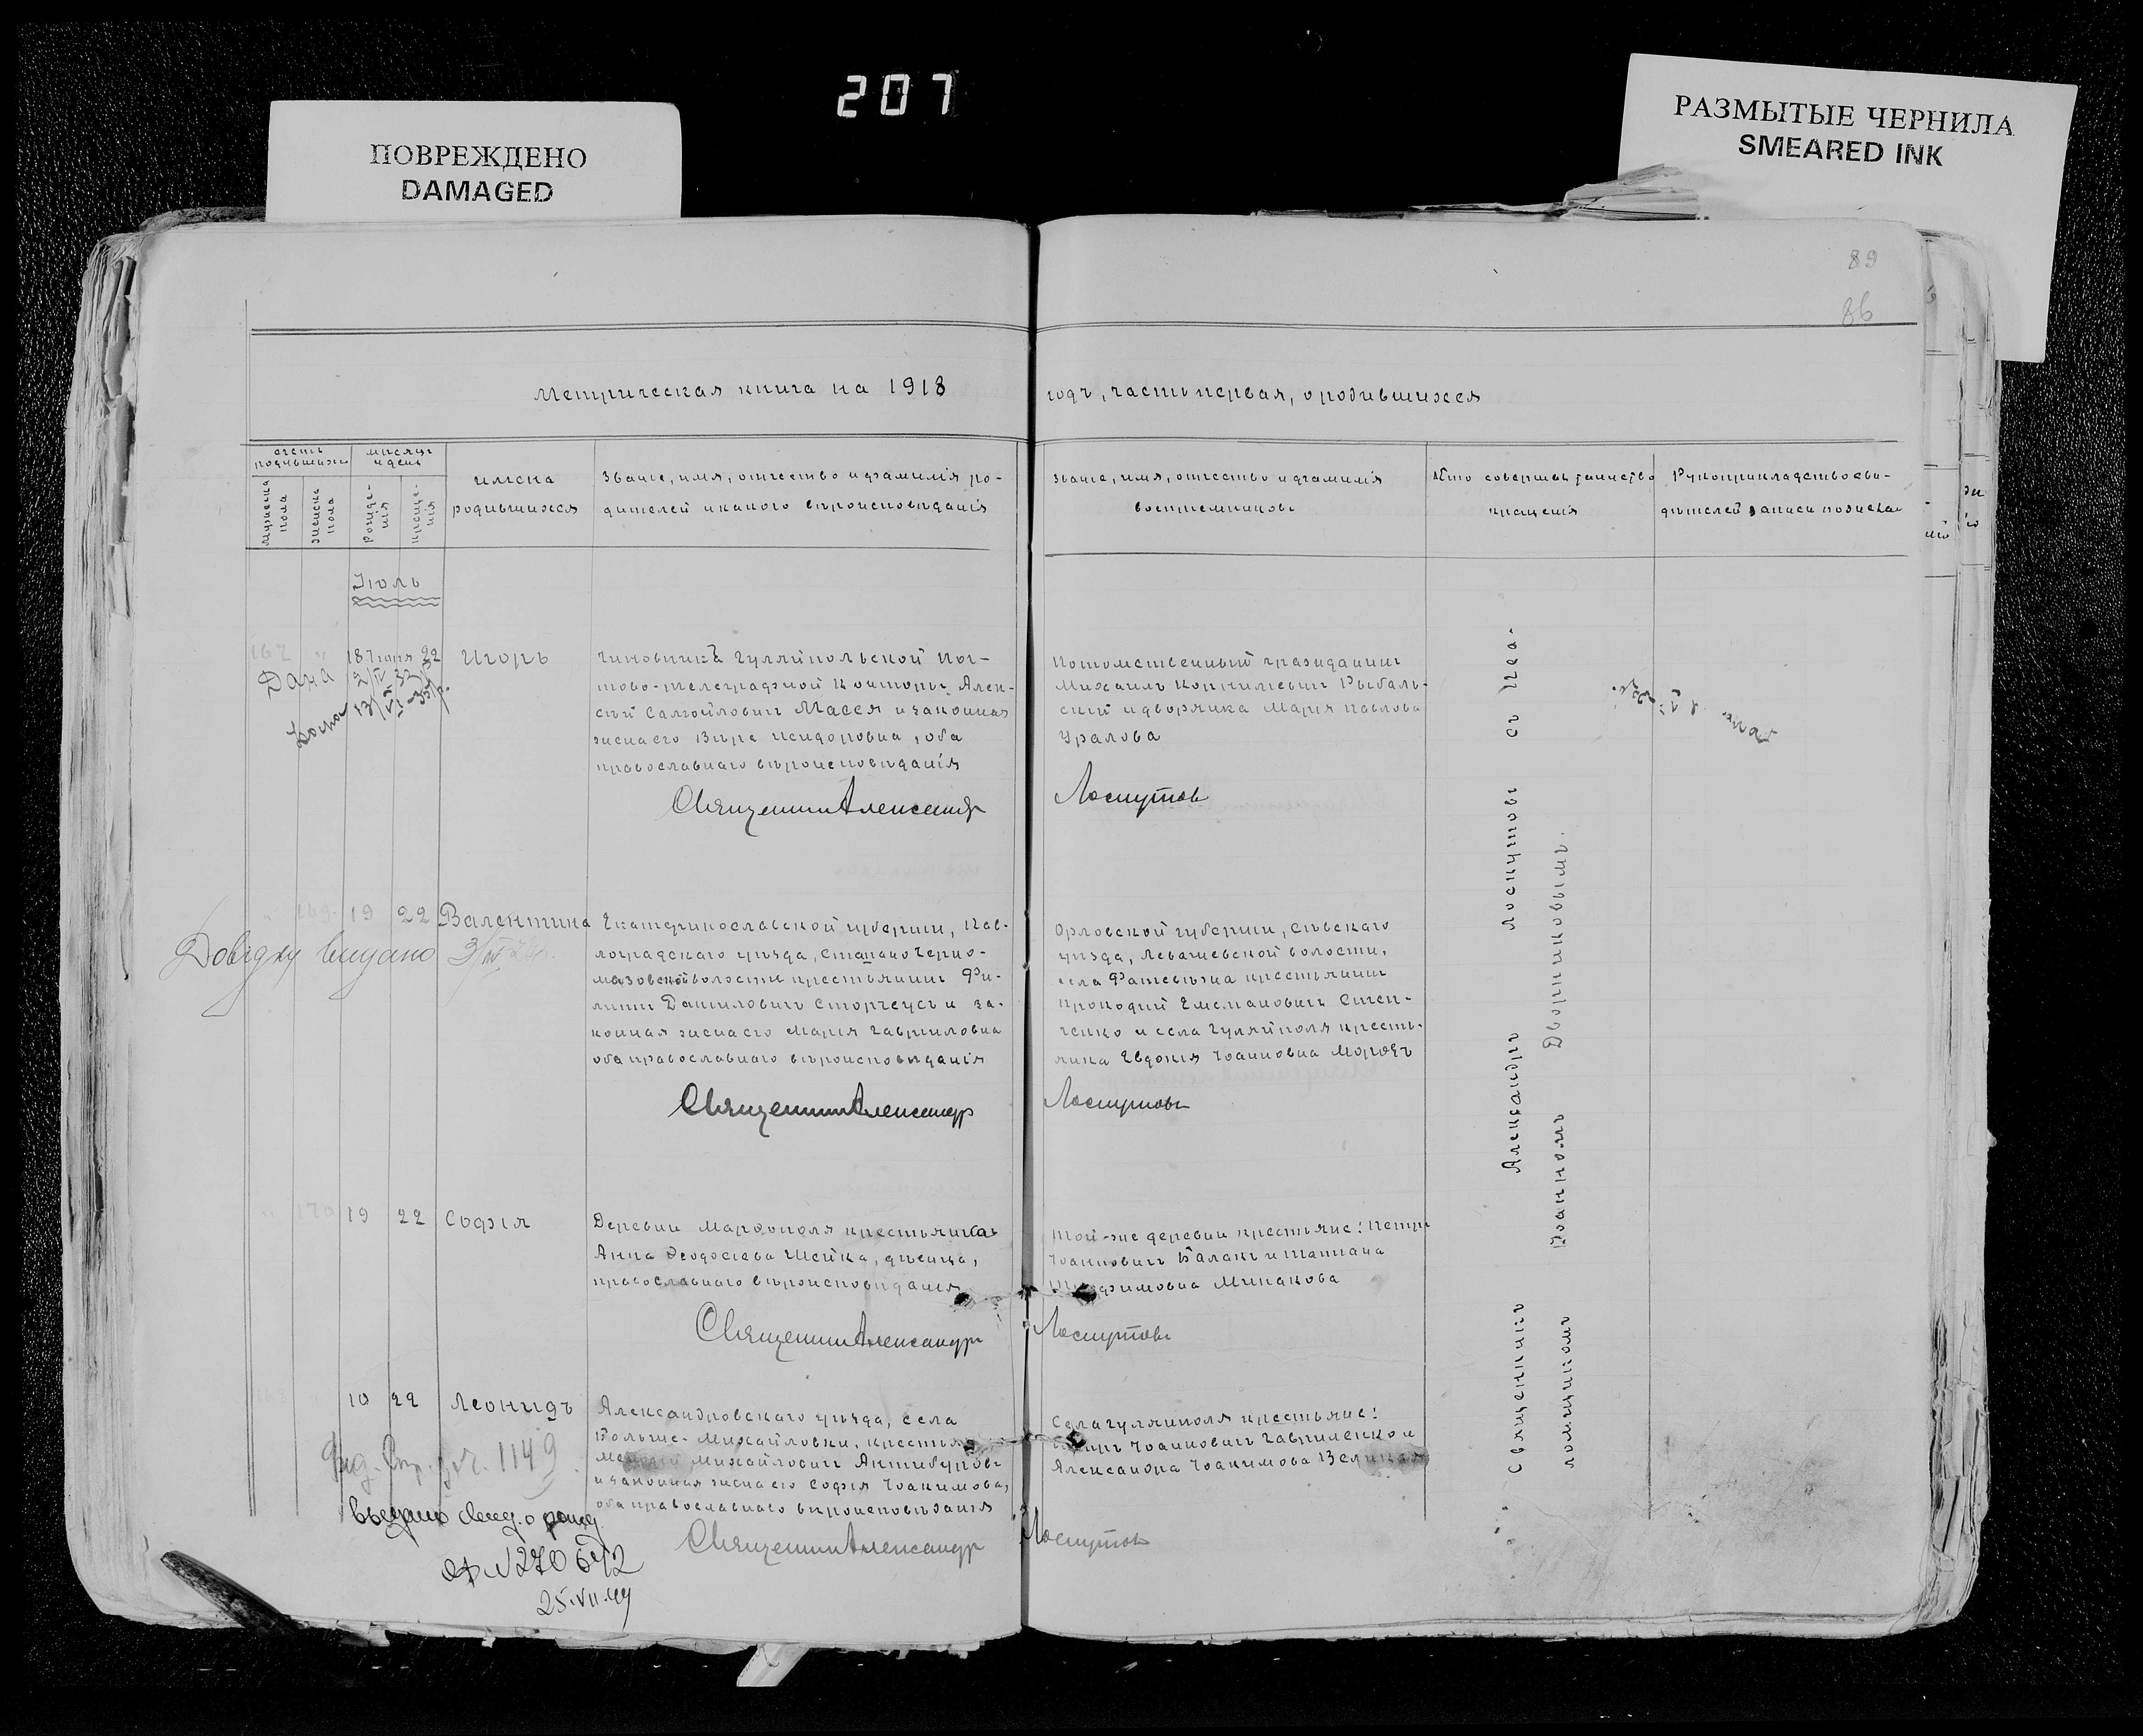 207
ПОВРЕЖДЕНО
DAMAGED
РАЗМЫТЫЕ ЧЕРНИЛА
SMEARED INK
89
86
Метрическая книга на 1918
годъ, часть первая, о родившихся
счетъ родившихся
мѣсяцъ и день
мужеска пола
женска пола
рожде-нія
креще-нія
имена
родившихся
Званіе, имя, отчество и фамилія ро-
дителей и какого вѣроисповѣданія
Званіе, имя, отчество и фамилія
воспріемниковъ
Кто совершалъ таинство
крещенія
Рукоприкладство сви-
дѣтелей записи по желан
Іюль
22
Игорь
Чиновникъ Гуляйпольской поч-
тово-телеграфной Конторы, Алек-
сѣй Самойловичъ Масся и законная
жена его Вѣра Исидоровна, оба
православнаго вѣроисповѣданія
Священникъ Александръ
Потомственный гражданинъ
Михаилъ Корниліевичъ Рыбаль-
скій и дворянка Марія Павлова
Уралова
Лоскутовъ
Дана 2/IV 32
169 19 22 Валентина
Довідку видано
Екатеринославской губерніи, Пав-
лоградскаго уѣзда, Степано
волости крестьянинъ Фи-
липпъ Даниловичъ Сторчеусъ и за-
конная жена его Марія Гавриловна
оба православнаго вѣроисповѣданія
Священникъ Александръ
Орловской губерніи, Сѣвскаго
уѣзда, Левашевской волости,
села крестьянинъ
Прокофій Емеліановичъ Стен-
ченко и села Гуляйполя кресть-
янка Евдокія Іоанновна Морозъ
Лоскутовъ
170 19 22 Софія
Деревни Марфополя крестьянка
Анна Ѳеодосіева Шейка, дѣвица,
православнаго вѣроисповѣданія
Священникъ Александръ
Той-же деревни крестьяне: Петръ
Іоанновичъ Балакъ и Татіана
Минакова
Лоскутовъ
10 22 Леонидъ
Александровскаго уѣзда, села
Больше-Михайловки, крестьян
Михайловичъ
и законная жена его Софія Іоакимова,
оба православнаго вѣроисповѣданія
Священникъ Александръ
Села Гуляйполя крестьяне:
Іоанновичъ Гавриленко и
Александра Іоакимова
Лоскутовъ
1149
о рожд.
№270642
25.VII.49
Священникъ Александръ Лоскутовъ съ Пса-
ломщикомъ Іоанномъ Дворниковымъ.